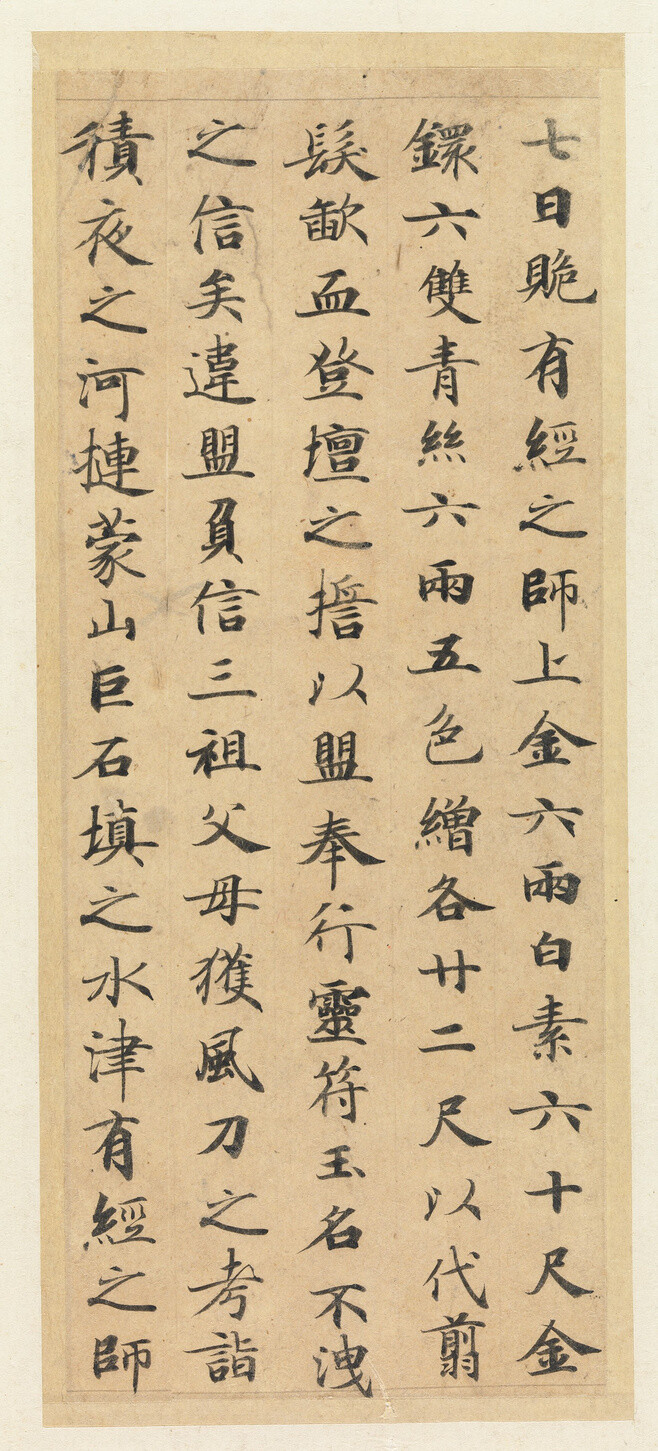 七日賜有經之師上金六兩白素六十尺金
鐶六雙青絲六兩五色繒各廿二尺以代翦
髮歃血登壇之誓以盟奉行靈符玉名不洩
之信矣違盟負信三祖父母獲風刀之考詣
積夜之河摙蒙山巨石填之水津有經之師